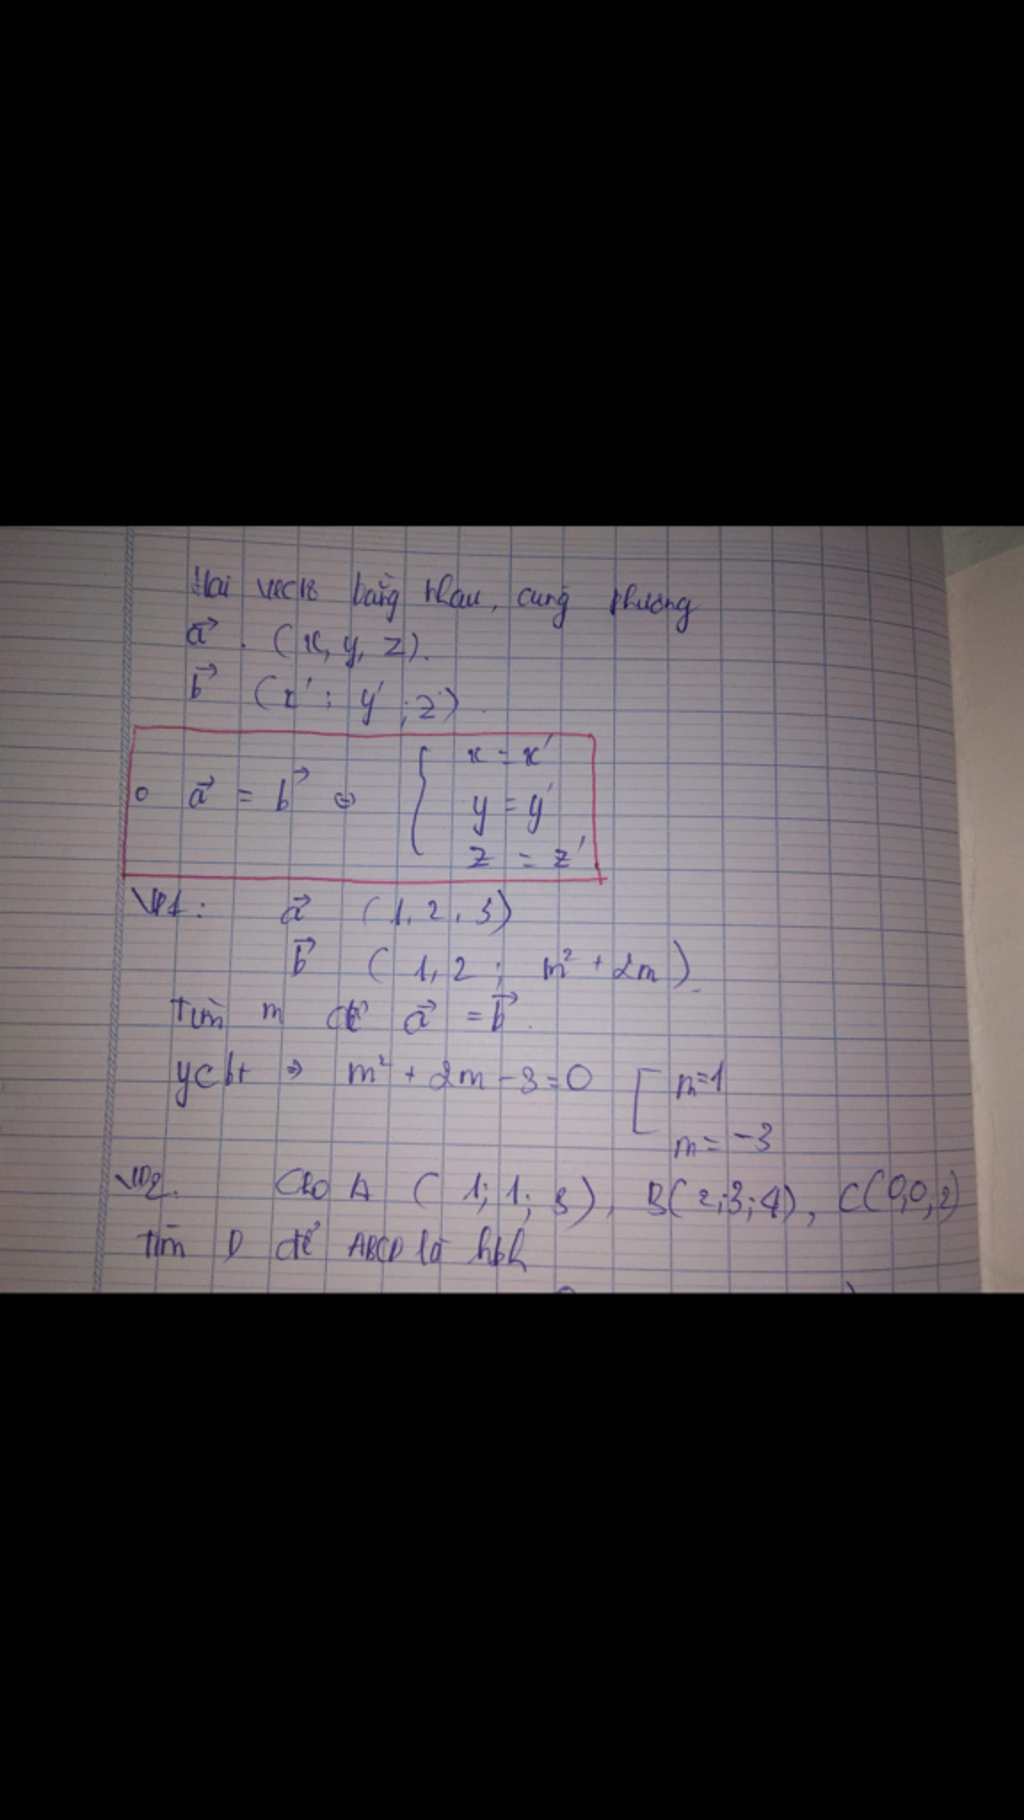 Hai vectơ bằng nhau, cùng phương
a⃗ . (x, y, z).
b⃗ (x' ; y' ; z')
o a⃗ = b⃗ ⇔ { x = x'
y = y'
z = z'
VD1: a⃗ (1, 2, 3)
b⃗ (1, 2 ; m² + 2m)
Tìm m để a⃗ = b⃗.
ycbt ⇒ m² + 2m - 3 = 0 [ m = 1
m = -3
VD2. Cho A (1; 1; 3), B(2; 3; 4), C(0, 0, 2)
Tìm D để ABCD là hbh